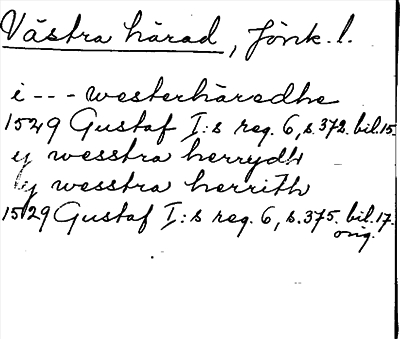 Västra härad, Jönk. l.
i - - - westerhäredhe
1529 Gustaf I:s reg. 6, s. 372. bil. 15.
y wesstra herrydh
y wesstra herrith
1529 Gustaf I:s reg. 6, s. 375. bil. 17.
orig.